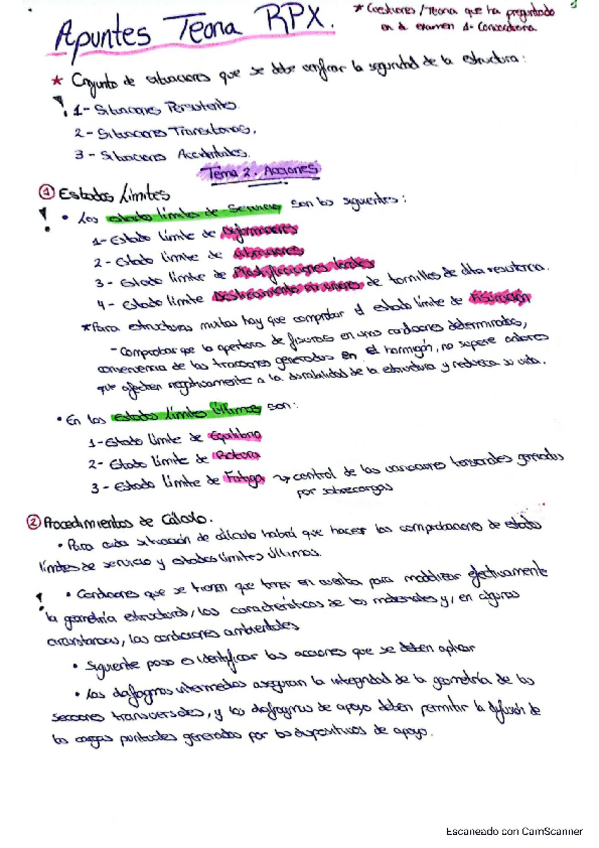 Apuntes Teoria RPX.
* Cuestiones/Teoria que ha preguntado
en el examen 1ª Convocatoria
* Conjunto de situaciones que se debe verificar la seguridad de la estructura:
1- Situaciones Persistentes.
2- Situaciones Transitorias.
3- Situaciones Accidentales.
Tema 2. Acciones
① Estados Límites
• Los estado límites de Servicio son los siguientes:
1- Estado límite de Deformaciones
2- Estado límite de Vibraciones
3- Estado límite de Plastificaciones locales
4- Estado límite Deslizamiento en uniones de tornillos de alta resistencia.
*Para estructuras mixtas hay que comprobar el estado límite de Fisuración
- Comprobar que la apertura de fisuras en unas condiciones determinadas,
consecuencia de las tracciones generadas en el hormigón, no supere valores
que afecten negativamente a la durabilidad de la estructura y reduzca su vida.
• En los Estados límites Últimos son:
1- Estado límite de Equilibrio
2- Estado límite de Rotura
3- Estado límite de Fatiga → control de las variaciones tensionales generadas
por sobrecargas
② Procedimientos de Cálculo.
• Para cada situación de cálculo habrá que hacer las comprobaciones de estados
límites de servicio y estados límites últimos.
• Condiciones que se tienen que tener en cuenta para modelizar efectivamente
la geometría estructural, las características de los materiales y, en algunas
circunstancias, las condiciones ambientales
• Siguiente paso es identificar las acciones que se deben aplicar
• Los diafragmas intermedios aseguran la integridad de la geometría de las
secciones transversales, y los diafragmas de apoyo deben permitir la difusión de
las cargas puntuales generadas por los dispositivos de apoyo.
Escaneado con CamScanner